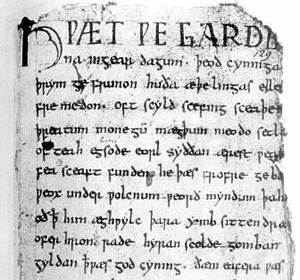 HǷÆT ǷE GARDE
na ingear dagum. þeod cyninga
þrym ge frunon huða æþelingas elle
fre medon. oft scyld scefing sceaþe
þreatum monegū mægþum meodo setl
of teah egsode eorl syððan ærest ƿea
fea sceaft funden he þæs frofre geb
ƿeox under ƿolcnum ƿeorð myndum þah
oð ꝥ him æghƿylc þara ymb sittendra
ofer hron rade hyran scolde gomban
gyldan ꝥ ƿæs god cyning. ðæm eafera ƿæs